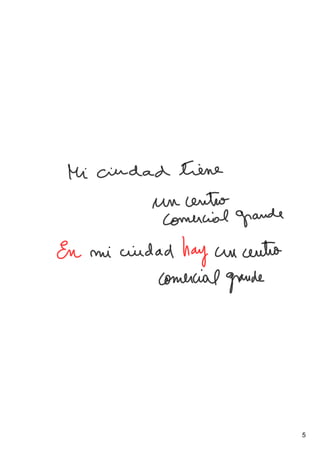 Mi ciudad tiene
un centro
comercial grande
En mi ciudad hay un centro
comercial grande
5